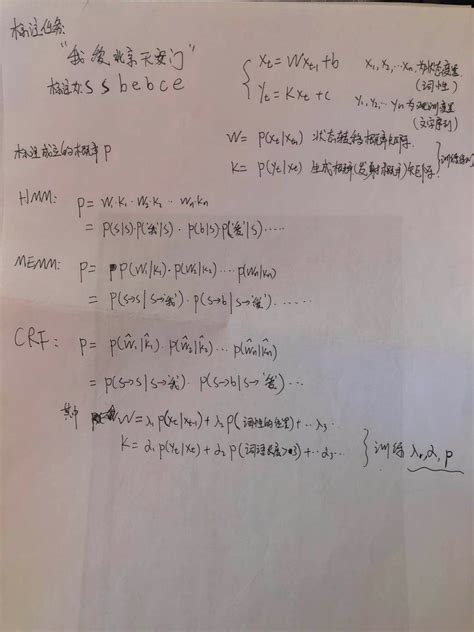 标注任务:
"我爱北京天安门"
标注为: s s b e b c e
{ Xt = WXt-1 + b    X1, X2, … Xn 为状态变量
(词性)
Yt = KXt + c    Y1, Y2, … Yn 为观测变量
(文字序列)
W = P(Xt|Xt-1) 状态转移概率矩阵
K = P(Yt|Xt) 生成概率(发射概率)矩阵
标注成立的概率 P
HMM: P = W1·K1·W2·K2 ·· Wn·Kn
= P(s|s)·P('我'|s)·P(b|s)·P('爱'|s)·····
MEMM: P = P(W1|K1)·P(W2|K2)···P(Wn|Kn)
= P(s→s|s→'我')·P(s→b|s→'爱')······
CRF: P = P(Ŵ1|K̂1)·P(Ŵ2|K̂2)···P(Ŵn|K̂n)
= P(s→s|s→'我')·P(s→b|s→'爱')···
其中 W = λ1 P(Xt|Xt-1) + λ2 P(词性的位置) + ·· λ3 ··
K = α1 P(Yt|Xt) + α2 P(词语长度>3) + ·· α3 ··
} 训练 λ, α, P